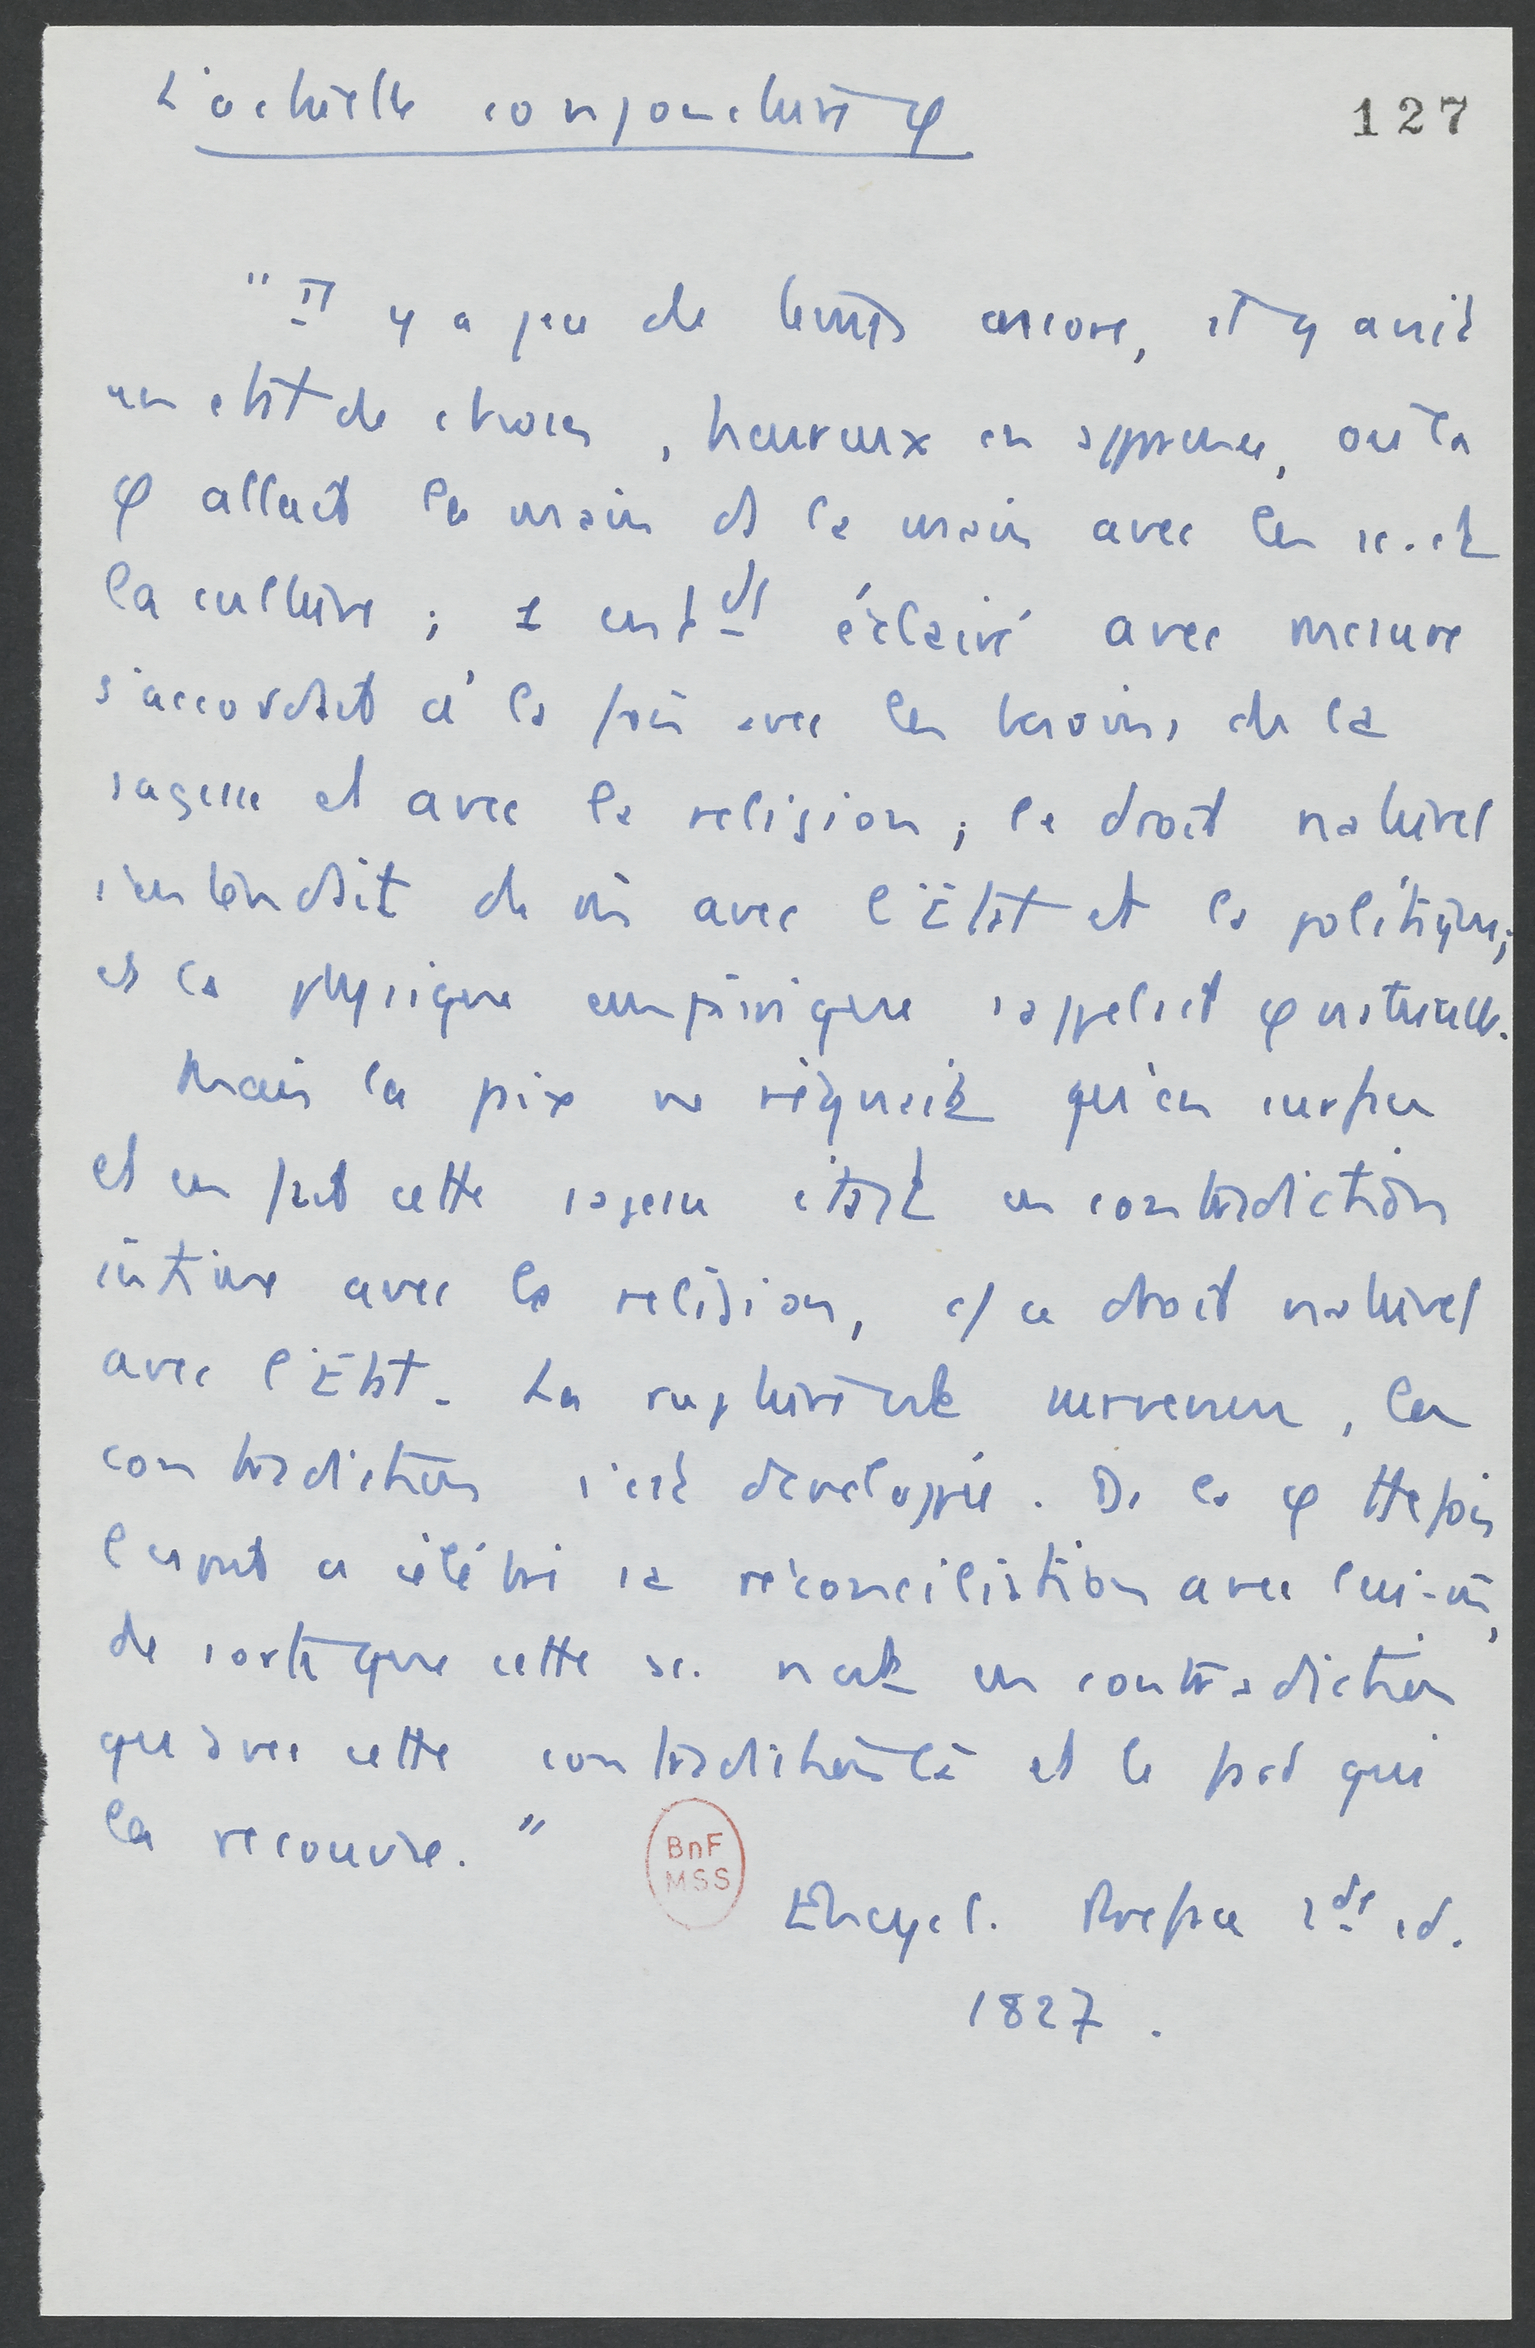 L'actuelle conjoncture φ
127
"Il y a peu de temps encore, il y avait
un état de choses, heureux en apparence, où la
φ allait la main ds la main avec les sc. et
la culture ; 1 entdt éclairé avec mesure
s'accordait à la fois avec les besoins de la
sagesse et avec la religion ; le droit naturel
s'entendait de m̂ avec l'État et la politique ;
et la physique empirique s'appelait φ naturelle.
Mais la paix ne régnait qu'en surface
et en fait cette sagesse était en contradiction
intime avec la religion, et ce droit naturel
avec l'État. La rupture est survenue, la
contradiction s'est développée. Ds la φ ttefois
l'esprit a célébré sa réconciliation avec lui-m̂,
de sorte que cette sc. n'est en contradiction
qu'avec cette contradiction là et le fard qui
la recouvre."
BnF
MSS
Encycl. Préface 2de éd.
1827.